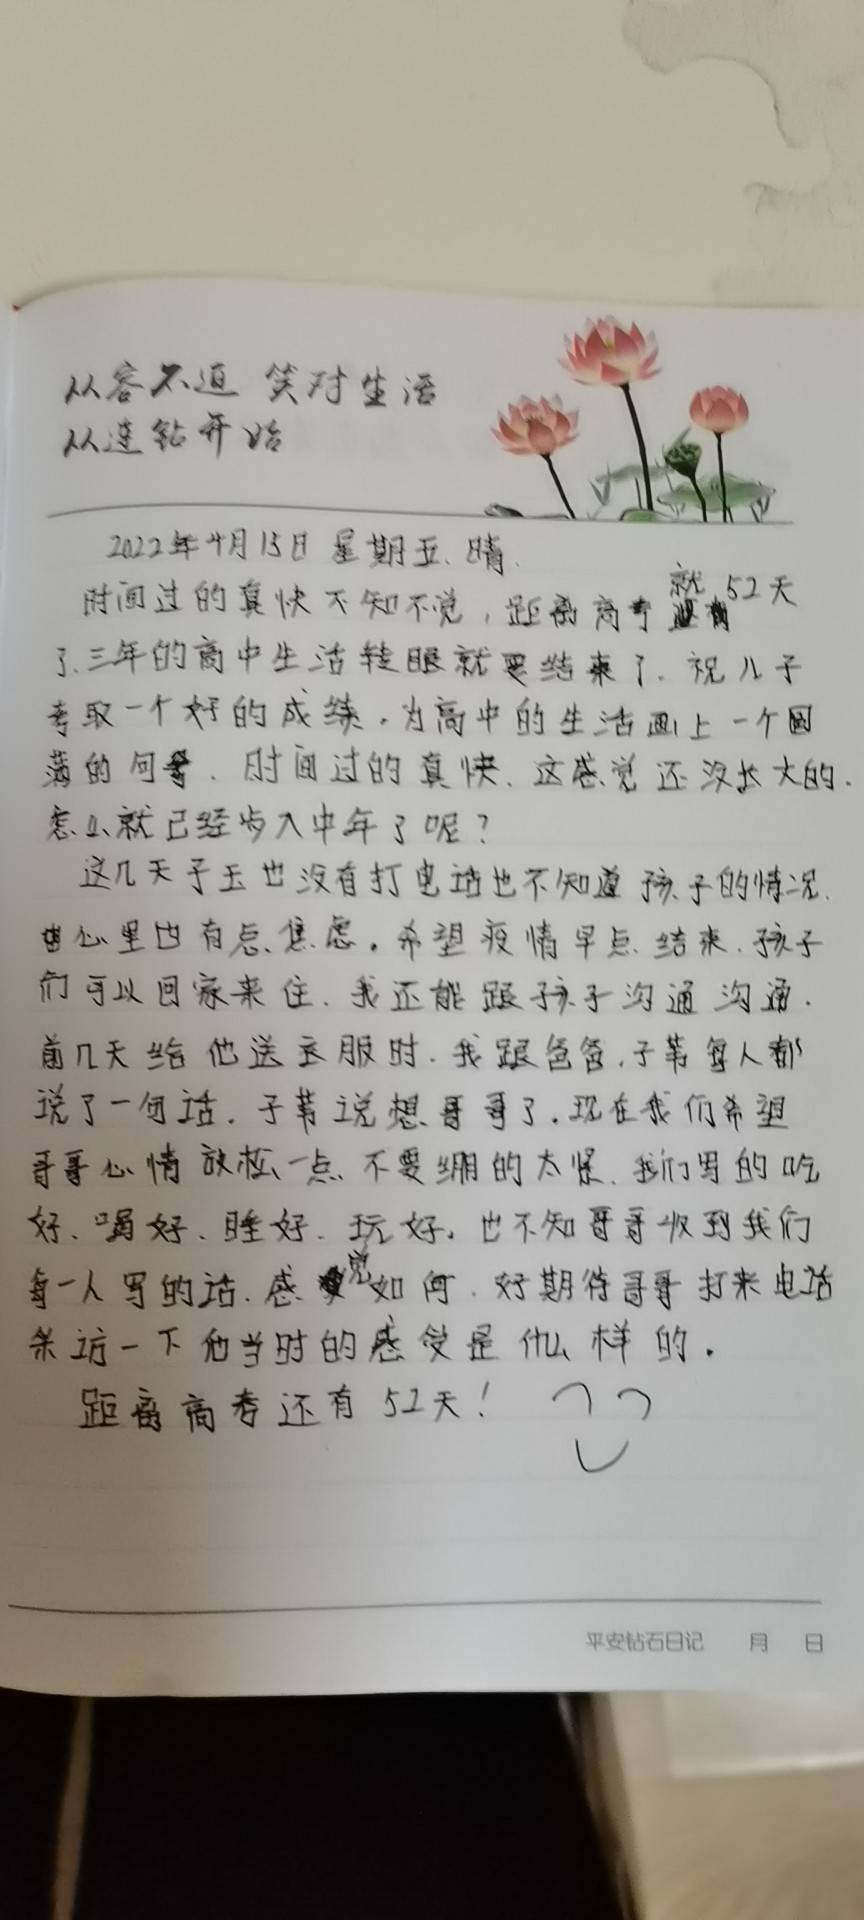 从容不迫 笑对生活
从连钻开始
2022年4月15日 星期五、晴.
时间过的真快不知不觉，距离高考就52天
了.三年的高中生活转眼就要结束了.祝儿子
考取一个好的成绩.为高中的生活画上一个圆
满的句号.时间过的真快.这感觉还没长大的.
怎么就已经步入中年了呢?
这几天子玉也没有打电话也不知道孩子的情况.
心里也有点焦虑.希望疫情早点结束.孩子
们可以回家来住.我还能跟孩子沟通沟通.
前几天给他送衣服时.我跟爸爸,子苇每人都
说了一句话.子苇说想哥哥了.现在我们希望
哥哥心情放松一点不要绷的太紧.我们写的吃
好、喝好、睡好、玩好.也不知哥哥收到我们
每一人写的话.感觉如何.好期待哥哥打来电话
采访一下他当时的感受是什么样的.
距离高考还有52天!
平安钻石日记 月 日